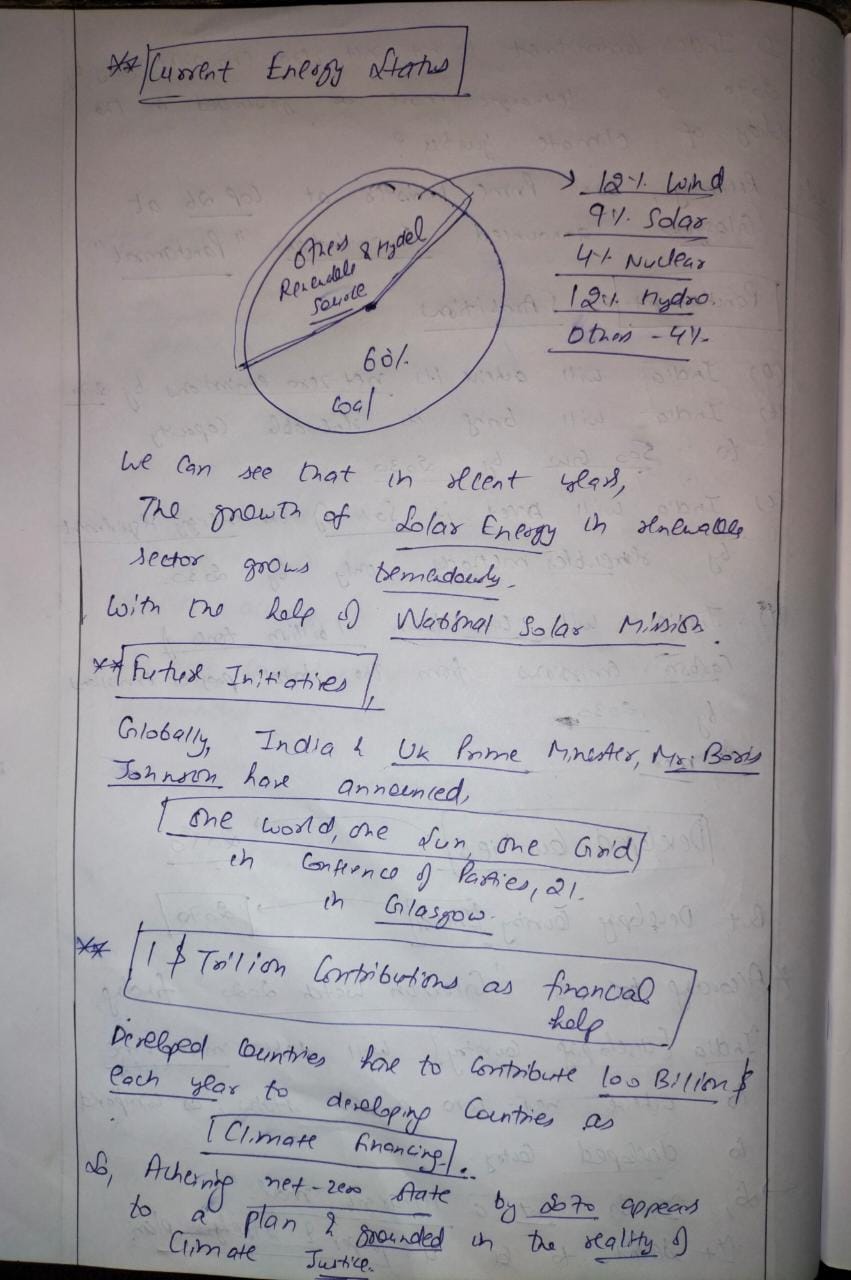 ** Current Energy Status
Others
Renewable & Hydel
Source
60%
Coal
12% Wind
9% Solar
4% Nuclear
12% Hydro.
Others - 4%
We Can see that in recent years,
The growth of Solar Energy in renewable
sector grows tremendously.
With the help of National Solar Mission.
** Future Initiatives
Globally, India & UK Prime Minester, Mr. Boris
Johnson have announced,
One world, one Sun, one Grid
in Confrence of Parties, 21.
in Glasgow.
** 1 $ Trilion Contributions as financial
help
Developed Countries have to Contribute 100 Billion $
each year to developing Countries as
Climate financing.
So, Acheiving net-zero state by 2070 appears
to a plan & grounded in the reality of
Climate Justice.